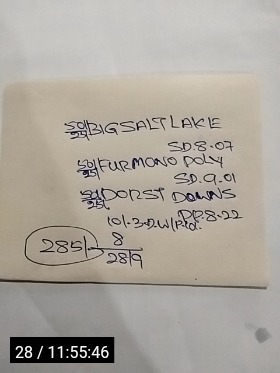 50/25 BIG SALT LAKE
SD.8.07
50/25 FURMONO POLY
SD.9.01
50/25 DORST DOWNS
DR.8.22
285/- 8
28/9
28 / 11:55:46